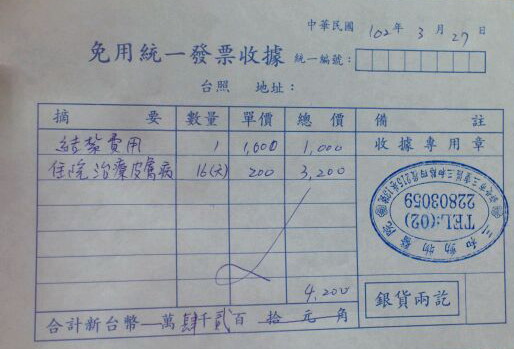 中華民國 102年 3月 27日
免用統一發票收據 統一編號：
台照 地址：
摘要 數量 單價 總價 備註
結紮費用 1 1,000 1,000 收據專用章
住院治療皮膚病 16(天) 200 3,200
TEL:(02)
22803059
4,200
銀貨兩訖
合計新台幣 萬肆千貳百拾元角